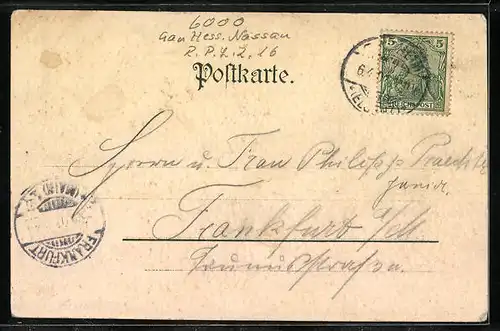 6000
Gau Hess. Nassau
R.P.Z.Z. 16
Postkarte.
5 5
REICHSPOST
Herrn u. Frau Philipp
junior.
Frankfurt a/M.
FRANKFURT
(MAIN)